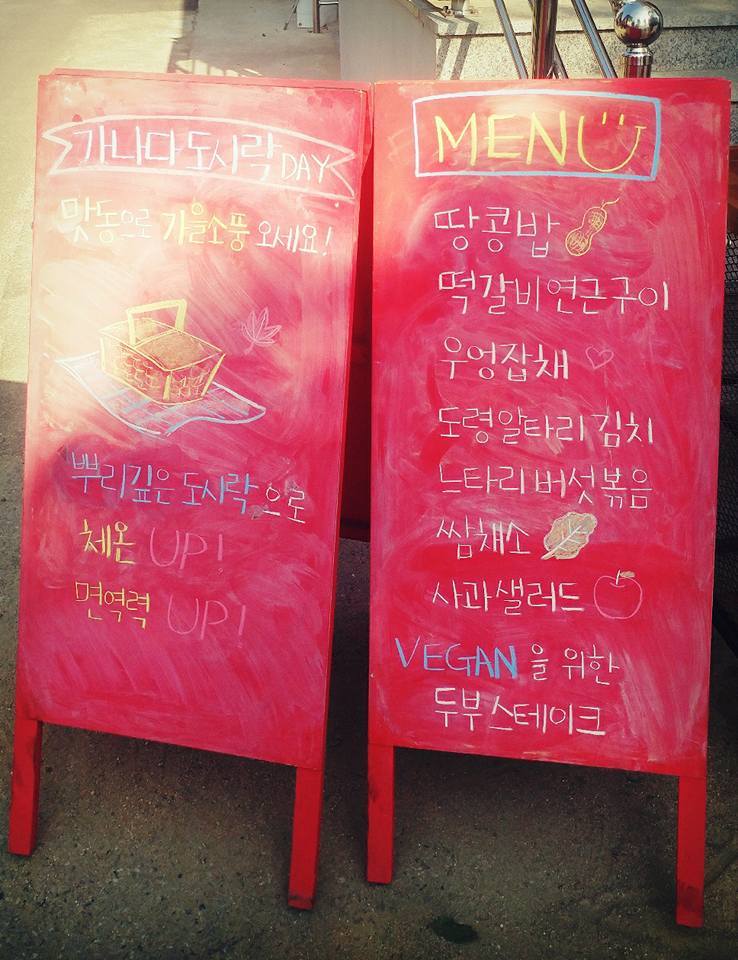 가나다 도시락 DAY
맛동으로 가을소풍 오세요!
뿌리깊은 도시락으로
체온 UP!
면역력 UP!
MENU
땅콩밥
떡갈비연근구이
우엉잡채
도령알타리김치
느타리버섯볶음
쌈채소
사과샐러드
VEGAN을 위한
두부스테이크